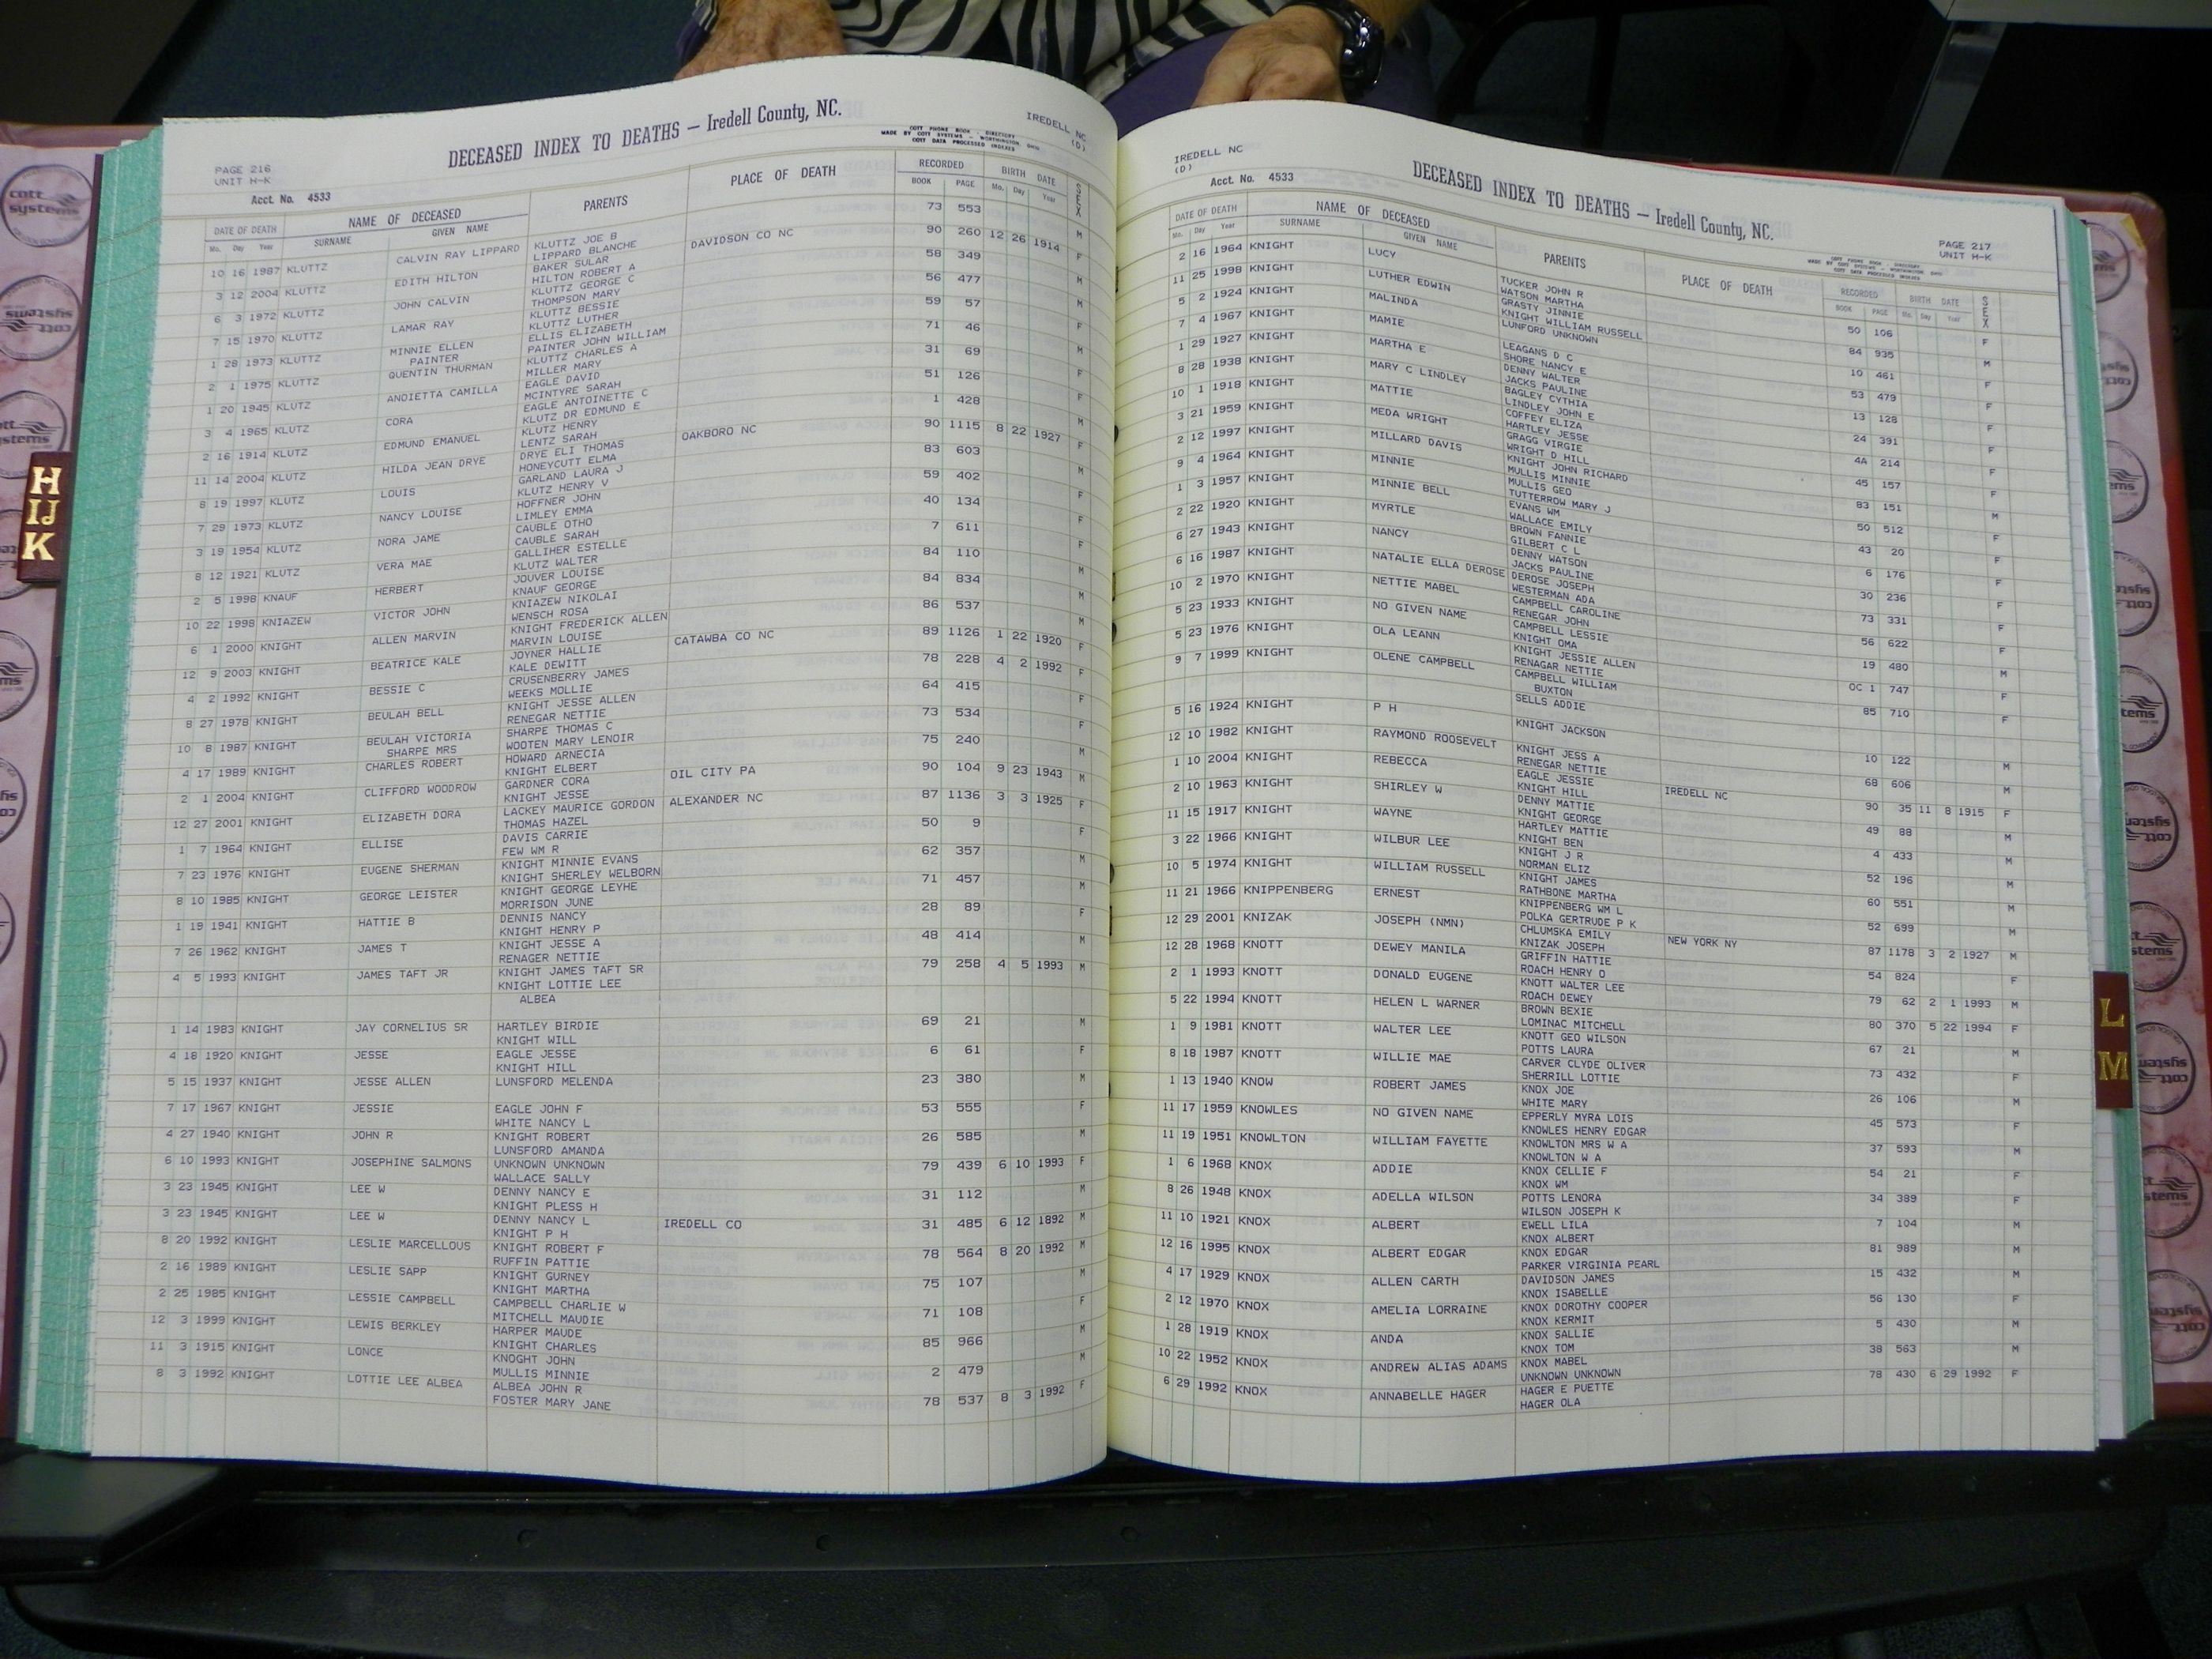 DECEASED INDEX TO DEATHS — Iredell County, NC.
IREDELL NC
(D)
COTT PHONE BOOK - DIRECTORY
MADE BY COTT SYSTEMS - WORTHINGTON, OHIO
COTT DATA PROCESSED INDEXES
PAGE 216
UNIT H-K
Acct. No. 4533
DATE OF DEATH NAME OF DECEASED PARENTS PLACE OF DEATH RECORDED BIRTH DATE SEX
Mo. Day Year SURNAME GIVEN NAME BOOK PAGE Mo. Day Year
10 16 1987 KLUTTZ CALVIN RAY LIPPARD KLUTTZ JOE B 73 553 M
LIPPARD BLANCHE
3 12 2004 KLUTTZ EDITH HILTON BAKER SULAR DAVIDSON CO NC 90 260 12 26 1914 F
HILTON ROBERT A
6 3 1972 KLUTTZ JOHN CALVIN KLUTTZ GEORGE C 58 349 M
THOMPSON MARY
7 15 1970 KLUTTZ LAMAR RAY KLUTTZ BESSIE 56 477 M
KLUTTZ LUTHER
1 28 1973 KLUTTZ MINNIE ELLEN ELLIS ELIZABETH 59 57 F
PAINTER PAINTER JOHN WILLIAM
2 1 1975 KLUTTZ QUENTIN THURMAN KLUTTZ CHARLES A 71 46 M
MILLER MARY
1 20 1945 KLUTZ ANDIETTA CAMILLA EAGLE DAVID 31 69 F
MCINTYRE SARAH
3 4 1965 KLUTZ CORA EAGLE ANTOINETTE C 51 126 F
KLUTZ DR EDMUND E
2 16 1914 KLUTZ EDMUND EMANUEL KLUTZ HENRY 1 428 M
LENTZ SARAH
11 14 2004 KLUTZ HILDA JEAN DRYE DRYE ELI THOMAS OAKBORO NC 90 1115 8 22 1927 F
HONEYCUTT ELMA
8 19 1997 KLUTZ LOUIS GARLAND LAURA J 83 603 M
KLUTZ HENRY V
7 29 1973 KLUTZ NANCY LOUISE HOFFNER JOHN 59 402 F
LIMLEY EMMA
3 19 1954 KLUTZ NORA JAME CAUBLE OTHO 40 134 F
CAUBLE SARAH
8 12 1921 KLUTZ VERA MAE GALLIHER ESTELLE 7 611 F
KLUTZ WALTER
2 5 1998 KNAUF HERBERT JOUVER LOUISE 84 110 M
KNAUF GEORGE
10 22 1998 KNIAZEW VICTOR JOHN KNIAZEW NIKOLAI 84 834 M
WENSCH ROSA
6 1 2000 KNIGHT ALLEN MARVIN KNIGHT FREDERICK ALLEN 86 537 M
MARVIN LOUISE
12 9 2003 KNIGHT BEATRICE KALE JOYNER HALLIE CATAWBA CO NC 89 1126 1 22 1920 F
KALE DEWITT
4 2 1992 KNIGHT BESSIE C CRUSENBERRY JAMES 78 228 4 2 1992 F
WEEKS MOLLIE
8 27 1978 KNIGHT BEULAH BELL KNIGHT JESSE ALLEN 64 415 F
RENEGAR NETTIE
10 8 1987 KNIGHT BEULAH VICTORIA SHARPE THOMAS C 73 534 F
SHARPE MRS WOOTEN MARY LENOIR
4 17 1989 KNIGHT CHARLES ROBERT HOWARD ARNECIA 75 240 M
KNIGHT ELBERT
2 1 2004 KNIGHT CLIFFORD WOODROW GARDNER CORA OIL CITY PA 90 104 9 23 1943 M
KNIGHT JESSE
12 27 2001 KNIGHT ELIZABETH DORA LACKEY MAURICE GORDON ALEXANDER NC 87 1136 3 3 1925 F
THOMAS HAZEL
1 7 1964 KNIGHT ELLISE DAVIS CARRIE 50 9 F
FEW WM R
7 23 1976 KNIGHT EUGENE SHERMAN KNIGHT MINNIE EVANS 62 357 M
KNIGHT SHERLEY WELBORN
8 10 1985 KNIGHT GEORGE LEISTER KNIGHT GEORGE LEYHE 71 457 M
MORRISON JUNE
1 19 1941 KNIGHT HATTIE B DENNIS NANCY 28 89 F
KNIGHT HENRY P
7 26 1962 KNIGHT JAMES T KNIGHT JESSE A 48 414 M
RENAGER NETTIE
4 5 1993 KNIGHT JAMES TAFT JR KNIGHT JAMES TAFT SR 79 258 4 5 1993 M
KNIGHT LOTTIE LEE
ALBEA
1 14 1983 KNIGHT JAY CORNELIUS SR HARTLEY BIRDIE 69 21 M
KNIGHT WILL
4 18 1920 KNIGHT JESSE EAGLE JESSE 6 61 F
KNIGHT HILL
5 15 1937 KNIGHT JESSE ALLEN LUNSFORD MELENDA 23 380 M
7 17 1967 KNIGHT JESSIE EAGLE JOHN F 53 555 F
WHITE NANCY L
4 27 1940 KNIGHT JOHN R KNIGHT ROBERT 26 585 M
LUNSFORD AMANDA
6 10 1993 KNIGHT JOSEPHINE SALMONS UNKNOWN UNKNOWN 79 439 6 10 1993 F
WALLACE SALLY
3 23 1945 KNIGHT LEE W DENNY NANCY E 31 112 M
KNIGHT PLESS H
3 23 1945 KNIGHT LEE W DENNY NANCY L IREDELL CO 31 485 6 12 1892 M
KNIGHT P H
8 20 1992 KNIGHT LESLIE MARCELLOUS KNIGHT ROBERT F 78 564 8 20 1992 M
RUFFIN PATTIE
2 16 1989 KNIGHT LESLIE SAPP KNIGHT GURNEY 75 107 M
KNIGHT MARTHA
2 25 1985 KNIGHT LESSIE CAMPBELL CAMPBELL CHARLIE W 71 108 F
MITCHELL MAUDIE
12 3 1999 KNIGHT LEWIS BERKLEY HARPER MAUDE 85 966 M
KNIGHT CHARLES
11 3 1915 KNIGHT LONCE KNOGHT JOHN 2 479 M
MULLIS MINNIE
8 3 1992 KNIGHT LOTTIE LEE ALBEA ALBEA JOHN R 78 537 8 3 1992 F
FOSTER MARY JANE
IREDELL NC
(D)
Acct. No. 4533
DECEASED INDEX TO DEATHS — Iredell County, NC.
PAGE 217
UNIT H-K
COTT PHONE BOOK - DIRECTORY
MADE BY COTT SYSTEMS - WORTHINGTON, OHIO
COTT DATA PROCESSED INDEXES
DATE OF DEATH NAME OF DECEASED PARENTS PLACE OF DEATH RECORDED BIRTH DATE SEX
Mo. Day Year SURNAME GIVEN NAME BOOK PAGE Mo. Day Year
2 16 1964 KNIGHT LUCY TUCKER JOHN R 50 106 F
WATSON MARTHA
11 25 1998 KNIGHT LUTHER EDWIN GRASTY JINNIE 84 935 M
KNIGHT WILLIAM RUSSELL
5 2 1924 KNIGHT MALINDA LUNFORD UNKNOWN 10 461 F
7 4 1967 KNIGHT MAMIE LEAGANS D C 53 479 F
SHORE NANCY E
1 29 1927 KNIGHT MARTHA E DENNY WALTER 13 128 F
JACKS PAULINE
8 28 1938 KNIGHT MARY C LINDLEY BAGLEY CYTHIA 24 391 F
LINDLEY JOHN E
10 1 1918 KNIGHT MATTIE COFFEY ELIZA 4A 214 F
HARTLEY JESSE
3 21 1959 KNIGHT MEDA WRIGHT GRAGG VIRGIE 45 157 F
WRIGHT D HILL
2 12 1997 KNIGHT MILLARD DAVIS KNIGHT JOHN RICHARD 83 151 M
MULLIS MINNIE
9 4 1964 KNIGHT MINNIE MULLIS GEO 50 512 F
TUTTERROW MARY J
1 3 1957 KNIGHT MINNIE BELL EVANS WM 43 20 F
WALLACE EMILY
2 22 1920 KNIGHT MYRTLE BROWN FANNIE 6 176 F
GILBERT C L
6 27 1943 KNIGHT NANCY DENNY WATSON 30 236 F
JACKS PAULINE
6 16 1987 KNIGHT NATALIE ELLA DEROSE DEROSE JOSEPH 73 331 F
WESTERMAN ADA
10 2 1970 KNIGHT NETTIE MABEL CAMPBELL CAROLINE 56 622 F
RENEGAR JOHN
5 23 1933 KNIGHT NO GIVEN NAME CAMPBELL LESSIE 19 480 M
KNIGHT OMA
5 23 1976 KNIGHT OLA LEANN KNIGHT JESSIE ALLEN OC 1 747 F
RENAGAR NETTIE
9 7 1999 KNIGHT OLENE CAMPBELL CAMPBELL WILLIAM 85 710 F
BUXTON
SELLS ADDIE
5 16 1924 KNIGHT P H KNIGHT JACKSON 10 122 M
12 10 1982 KNIGHT RAYMOND ROOSEVELT KNIGHT JESS A 68 606 M
RENEGAR NETTIE
1 10 2004 KNIGHT REBECCA EAGLE JESSIE IREDELL NC 90 35 11 8 1915 F
KNIGHT HILL
2 10 1963 KNIGHT SHIRLEY W DENNY MATTIE 49 88 M
KNIGHT GEORGE
11 15 1917 KNIGHT WAYNE HARTLEY MATTIE 4 433 M
KNIGHT BEN
3 22 1966 KNIGHT WILBUR LEE KNIGHT J R 52 196 M
NORMAN ELIZ
10 5 1974 KNIGHT WILLIAM RUSSELL KNIGHT JAMES 60 551 M
RATHBONE MARTHA
11 21 1966 KNIPPENBERG ERNEST KNIPPENBERG WM L 52 699 M
POLKA GERTRUDE P K
12 29 2001 KNIZAK JOSEPH (NMN) CHLUMSKA EMILY NEW YORK NY 87 1178 3 2 1927 M
KNIZAK JOSEPH
12 28 1968 KNOTT DEWEY MANILA GRIFFIN HATTIE 54 824 F
ROACH HENRY O
2 1 1993 KNOTT DONALD EUGENE KNOTT WALTER LEE 79 62 2 1 1993 M
ROACH DEWEY
5 22 1994 KNOTT HELEN L WARNER BROWN BEXIE 80 370 5 22 1994 F
LOMINAC MITCHELL
1 9 1981 KNOTT WALTER LEE KNOTT GEO WILSON 67 21 M
POTTS LAURA
8 18 1987 KNOTT WILLIE MAE CARVER CLYDE OLIVER 73 432 F
SHERRILL LOTTIE
1 13 1940 KNOW ROBERT JAMES KNOX JOE 26 106 M
WHITE MARY
11 17 1959 KNOWLES NO GIVEN NAME EPPERLY MYRA LOIS 45 573 F
KNOWLES HENRY EDGAR
11 19 1951 KNOWLTON WILLIAM FAYETTE KNOWLTON MRS W A 37 593 M
KNOWLTON W A
1 6 1968 KNOX ADDIE KNOX CELLIE F 54 21 F
KNOX WM
8 26 1948 KNOX ADELLA WILSON POTTS LENORA 34 389 F
WILSON JOSEPH K
11 10 1921 KNOX ALBERT EWELL LILA 7 104 M
KNOX ALBERT
12 16 1995 KNOX ALBERT EDGAR KNOX EDGAR 81 989 M
PARKER VIRGINIA PEARL
4 17 1929 KNOX ALLEN CARTH DAVIDSON JAMES 15 432 M
KNOX ISABELLE
2 12 1970 KNOX AMELIA LORRAINE KNOX DOROTHY COOPER 56 130 F
KNOX KERMIT
1 28 1919 KNOX ANDA KNOX SALLIE 5 430 M
KNOX TOM
10 22 1952 KNOX ANDREW ALIAS ADAMS KNOX MABEL 38 563 M
UNKNOWN UNKNOWN
6 29 1992 KNOX ANNABELLE HAGER HAGER E PUETTE 78 430 6 29 1992 F
HAGER OLA
H
IJ
K
L
M
cott
systems